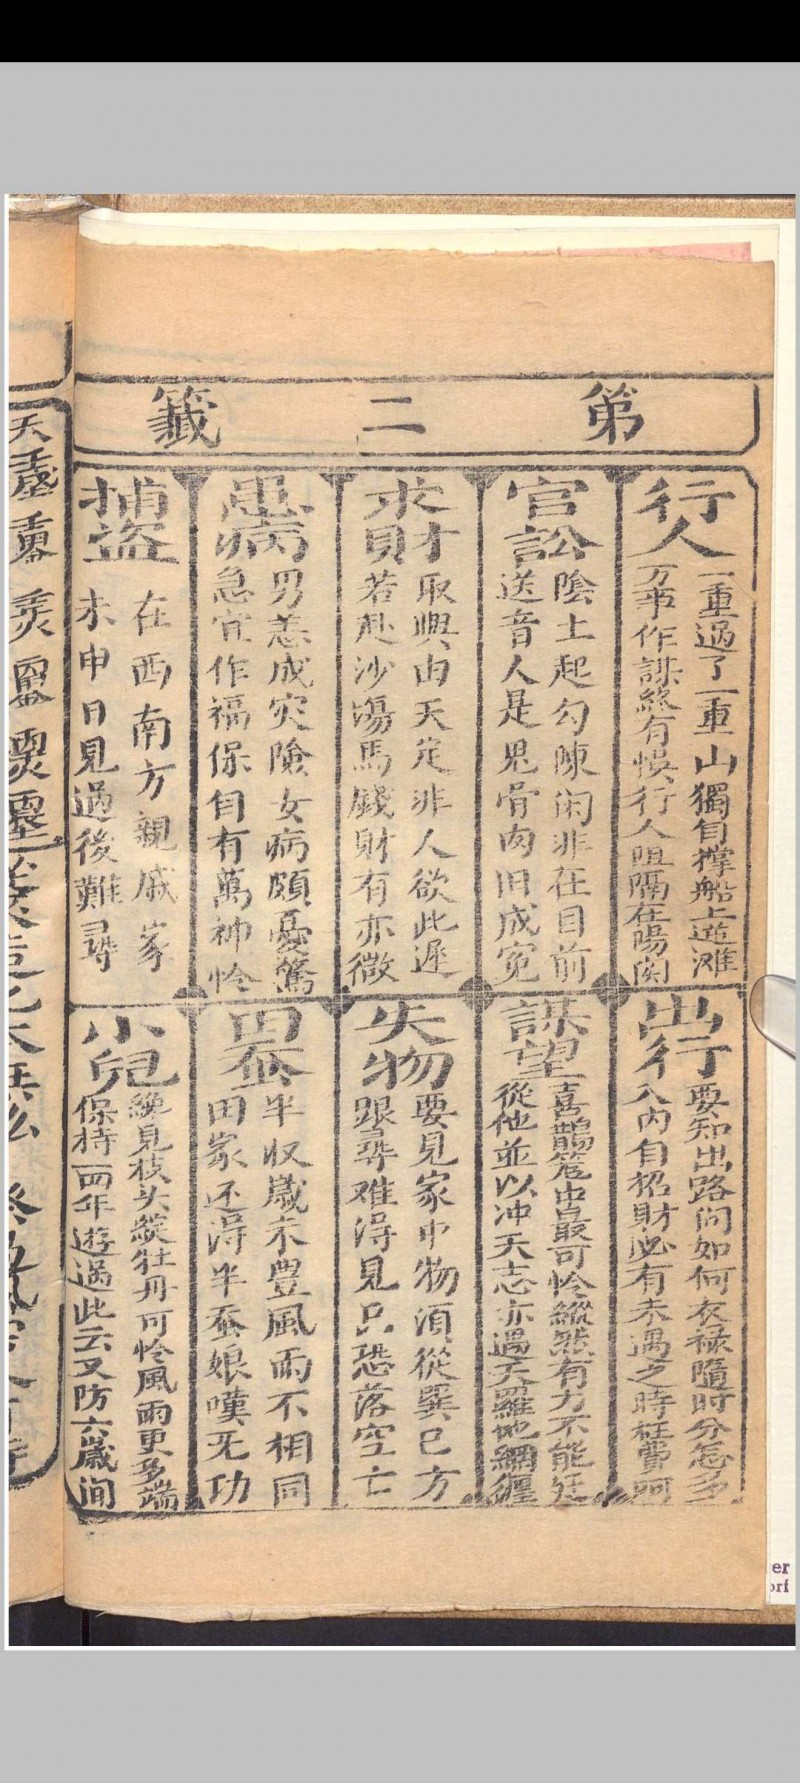 第二籤
行人
一重過了一重山獨自撑船上遊滩
万事作謀終有悞行人阻隔在陽関
官訟
陰土起勾陳闲非在目前
送音人是鬼骨肉旧成冤
求財
取與由天定非人欲此遲
若赴沙塲馬錢財有亦微
患病
男恙成灾險女病頗憂驚
急宜作福保自有萬神怜
捕盜
在西南方親戚家
未申日見過後難尋
出行
要知出路问如何衣禄隨时分怎多
入内自招財必有未遇之時枉費
謀望
喜鵲笼中最可怜縱然有力不能迁
從他並以冲天志亦遇天羅地網纒
失物
要見家中物須從巽巳方
跟尋难淂見只恐落空亡
田蚕
半収歲未豊風雨不相同
田家还淂半蚕娘嘆无功
小兒
纔見枝头綻牡丹可怜風雨更多端
保持両年遊過此云又防六歲间